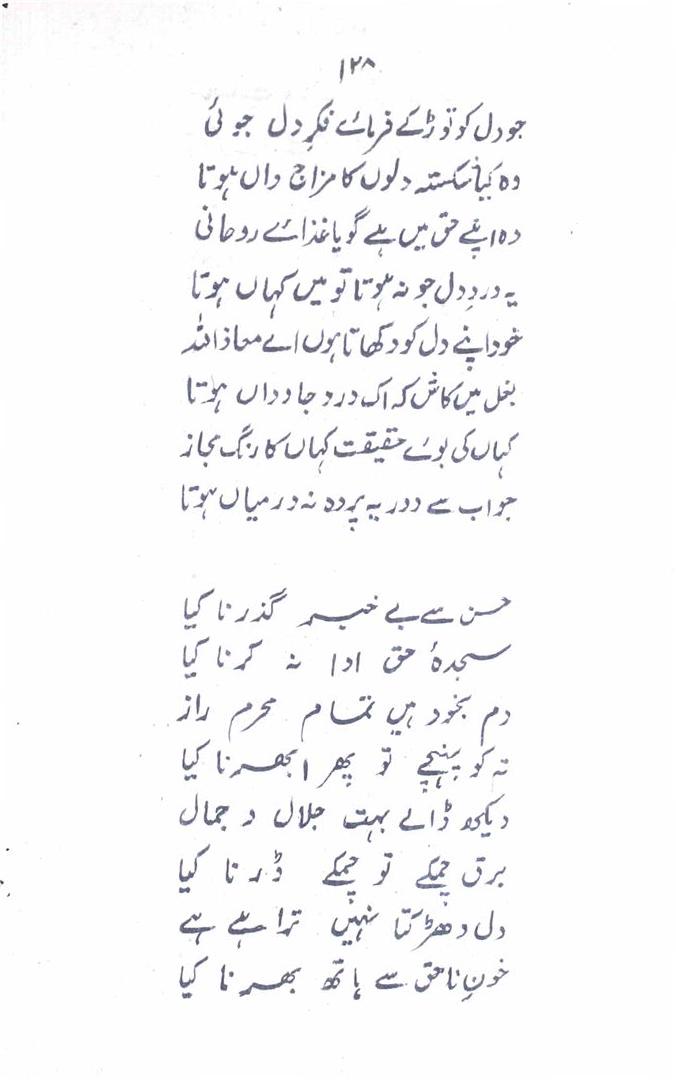 ۱۲۸
جو دل کو توڑ کے فرمائے فکرِ دل جوئی
وہ کیا شکستہ دلوں کا مزاج داں ہوتا
وہ اپنے حق میں ہے گویا غذائے روحانی
یہ دردِ دل جو نہ ہوتا تو میں کہاں ہوتا
خود اپنے دل کو دکھاتا ہوں اے معاذ اللہ
بغل میں کاش کہ اک درد جاوداں ہوتا
کہاں کی بوئے حقیقت کہاں کا رنگ مجاز
جواب سے دور یہ پردہ نہ درمیاں ہوتا
حسن سے بے خبر گذرنا کیا
سجدۂ حق ادا نہ کرنا کیا
دم بخود ہیں تمام محرم راز
تہ کو پہنچے تو پھر ابھرنا کیا
دیکھ ڈالے بہت جلال و جمال
برق چمکے تو چمکے ڈرنا کیا
دل دھڑکتا نہیں ترا ہے ہے
خونِ ناحق سے ہاتھ بھرنا کیا